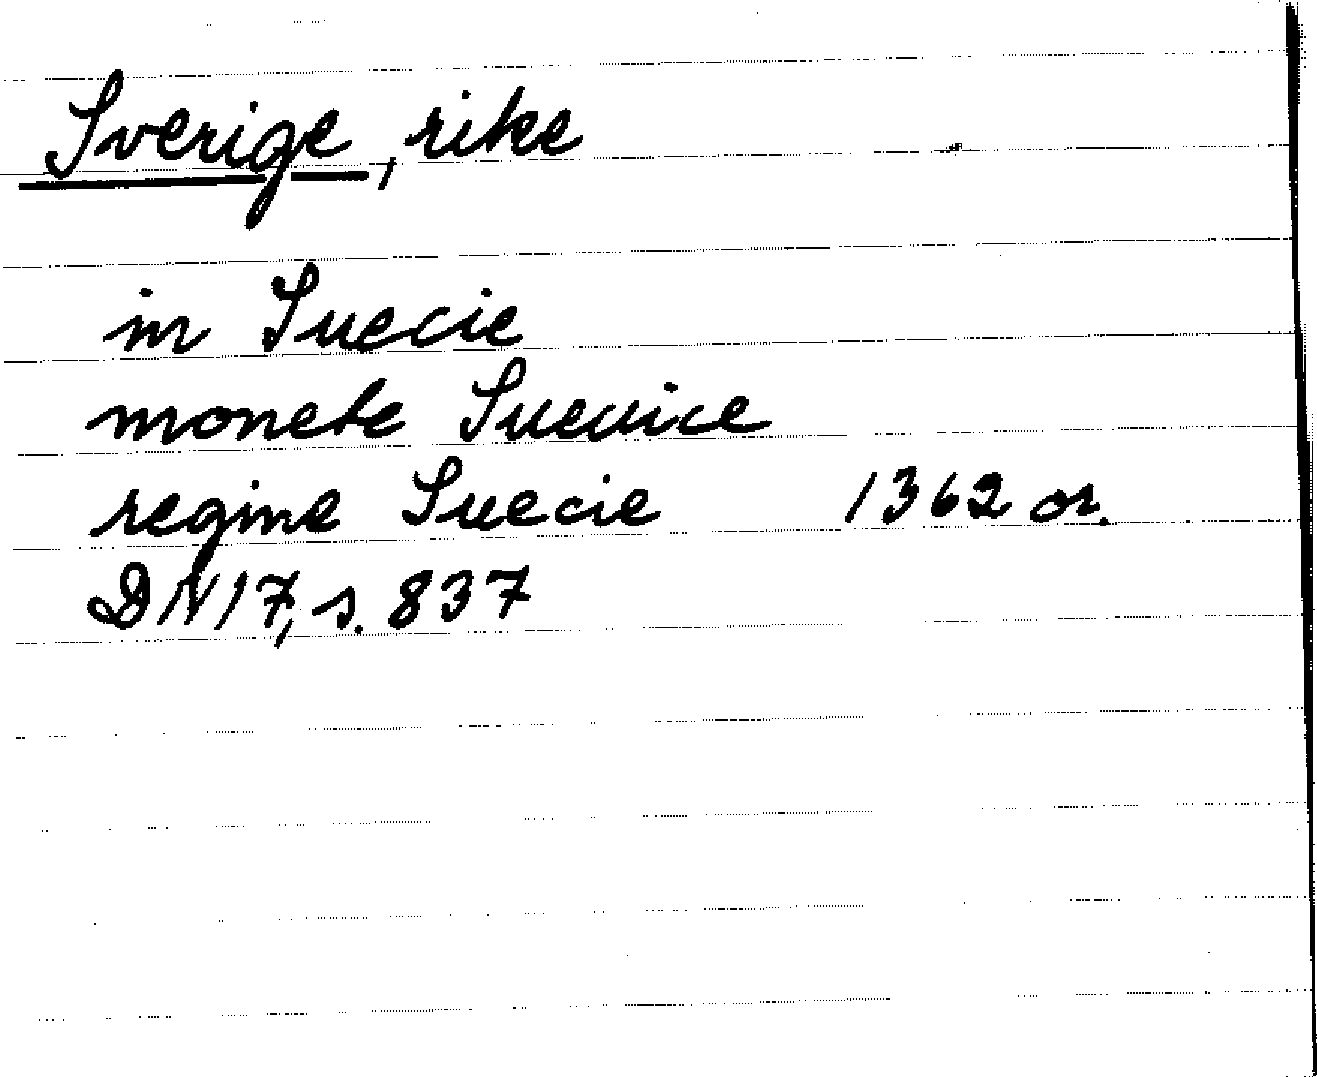 Sverige, rike
in Suecie
monete Sueuice
regine Suecie 1362 or.
DN 17, s. 837